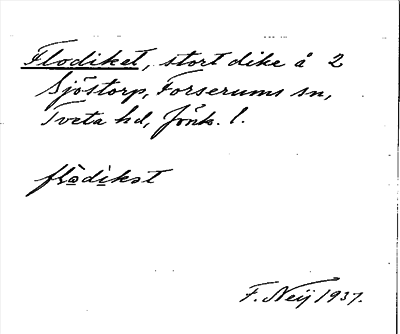 Flodiket, stort dike å 2
Sjöstorp, Forserums sn,
Tveta hd, Jönk. l.
flødikət
F. Neij 1937.